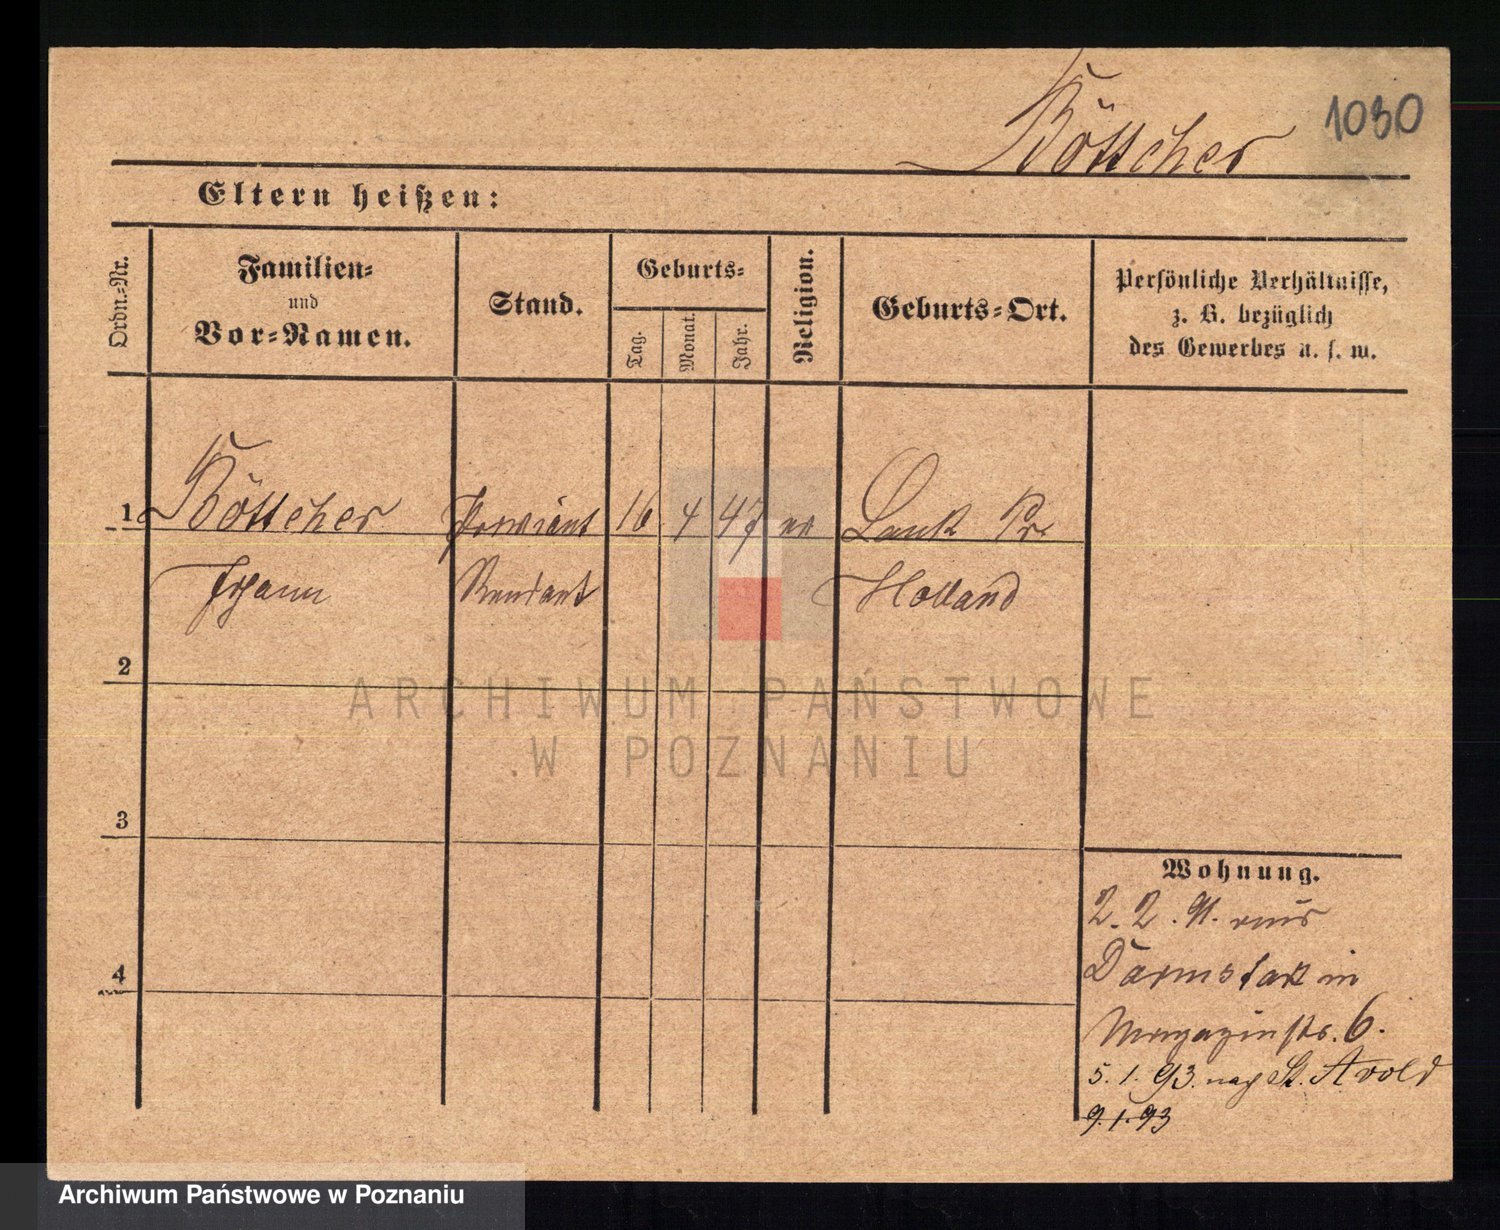 Böttcher
1030
Eltern heißen:
Ordn.-Nr.
Familien-
und
Vor-Namen.
Stand.
Geburts-
Tag.
Monat.
Jahr.
Religion.
Geburts-Ort.
Persönliche Verhältnisse,
z. B. bezüglich
des Gewerbes u. s. w.
1 Böttcher Proviant 16 4 47 ev Lank Pr
Johann Rendant Holland
2
3
4
ARCHIWUM PAŃSTWOWE
W POZNANIU
Wohnung.
2. 2. 91. aus
Darmstadt in
Magazinstr. 6.
5. 1. 93. nach St. Avold
9. 1. 93
Archiwum Państwowe w Poznaniu